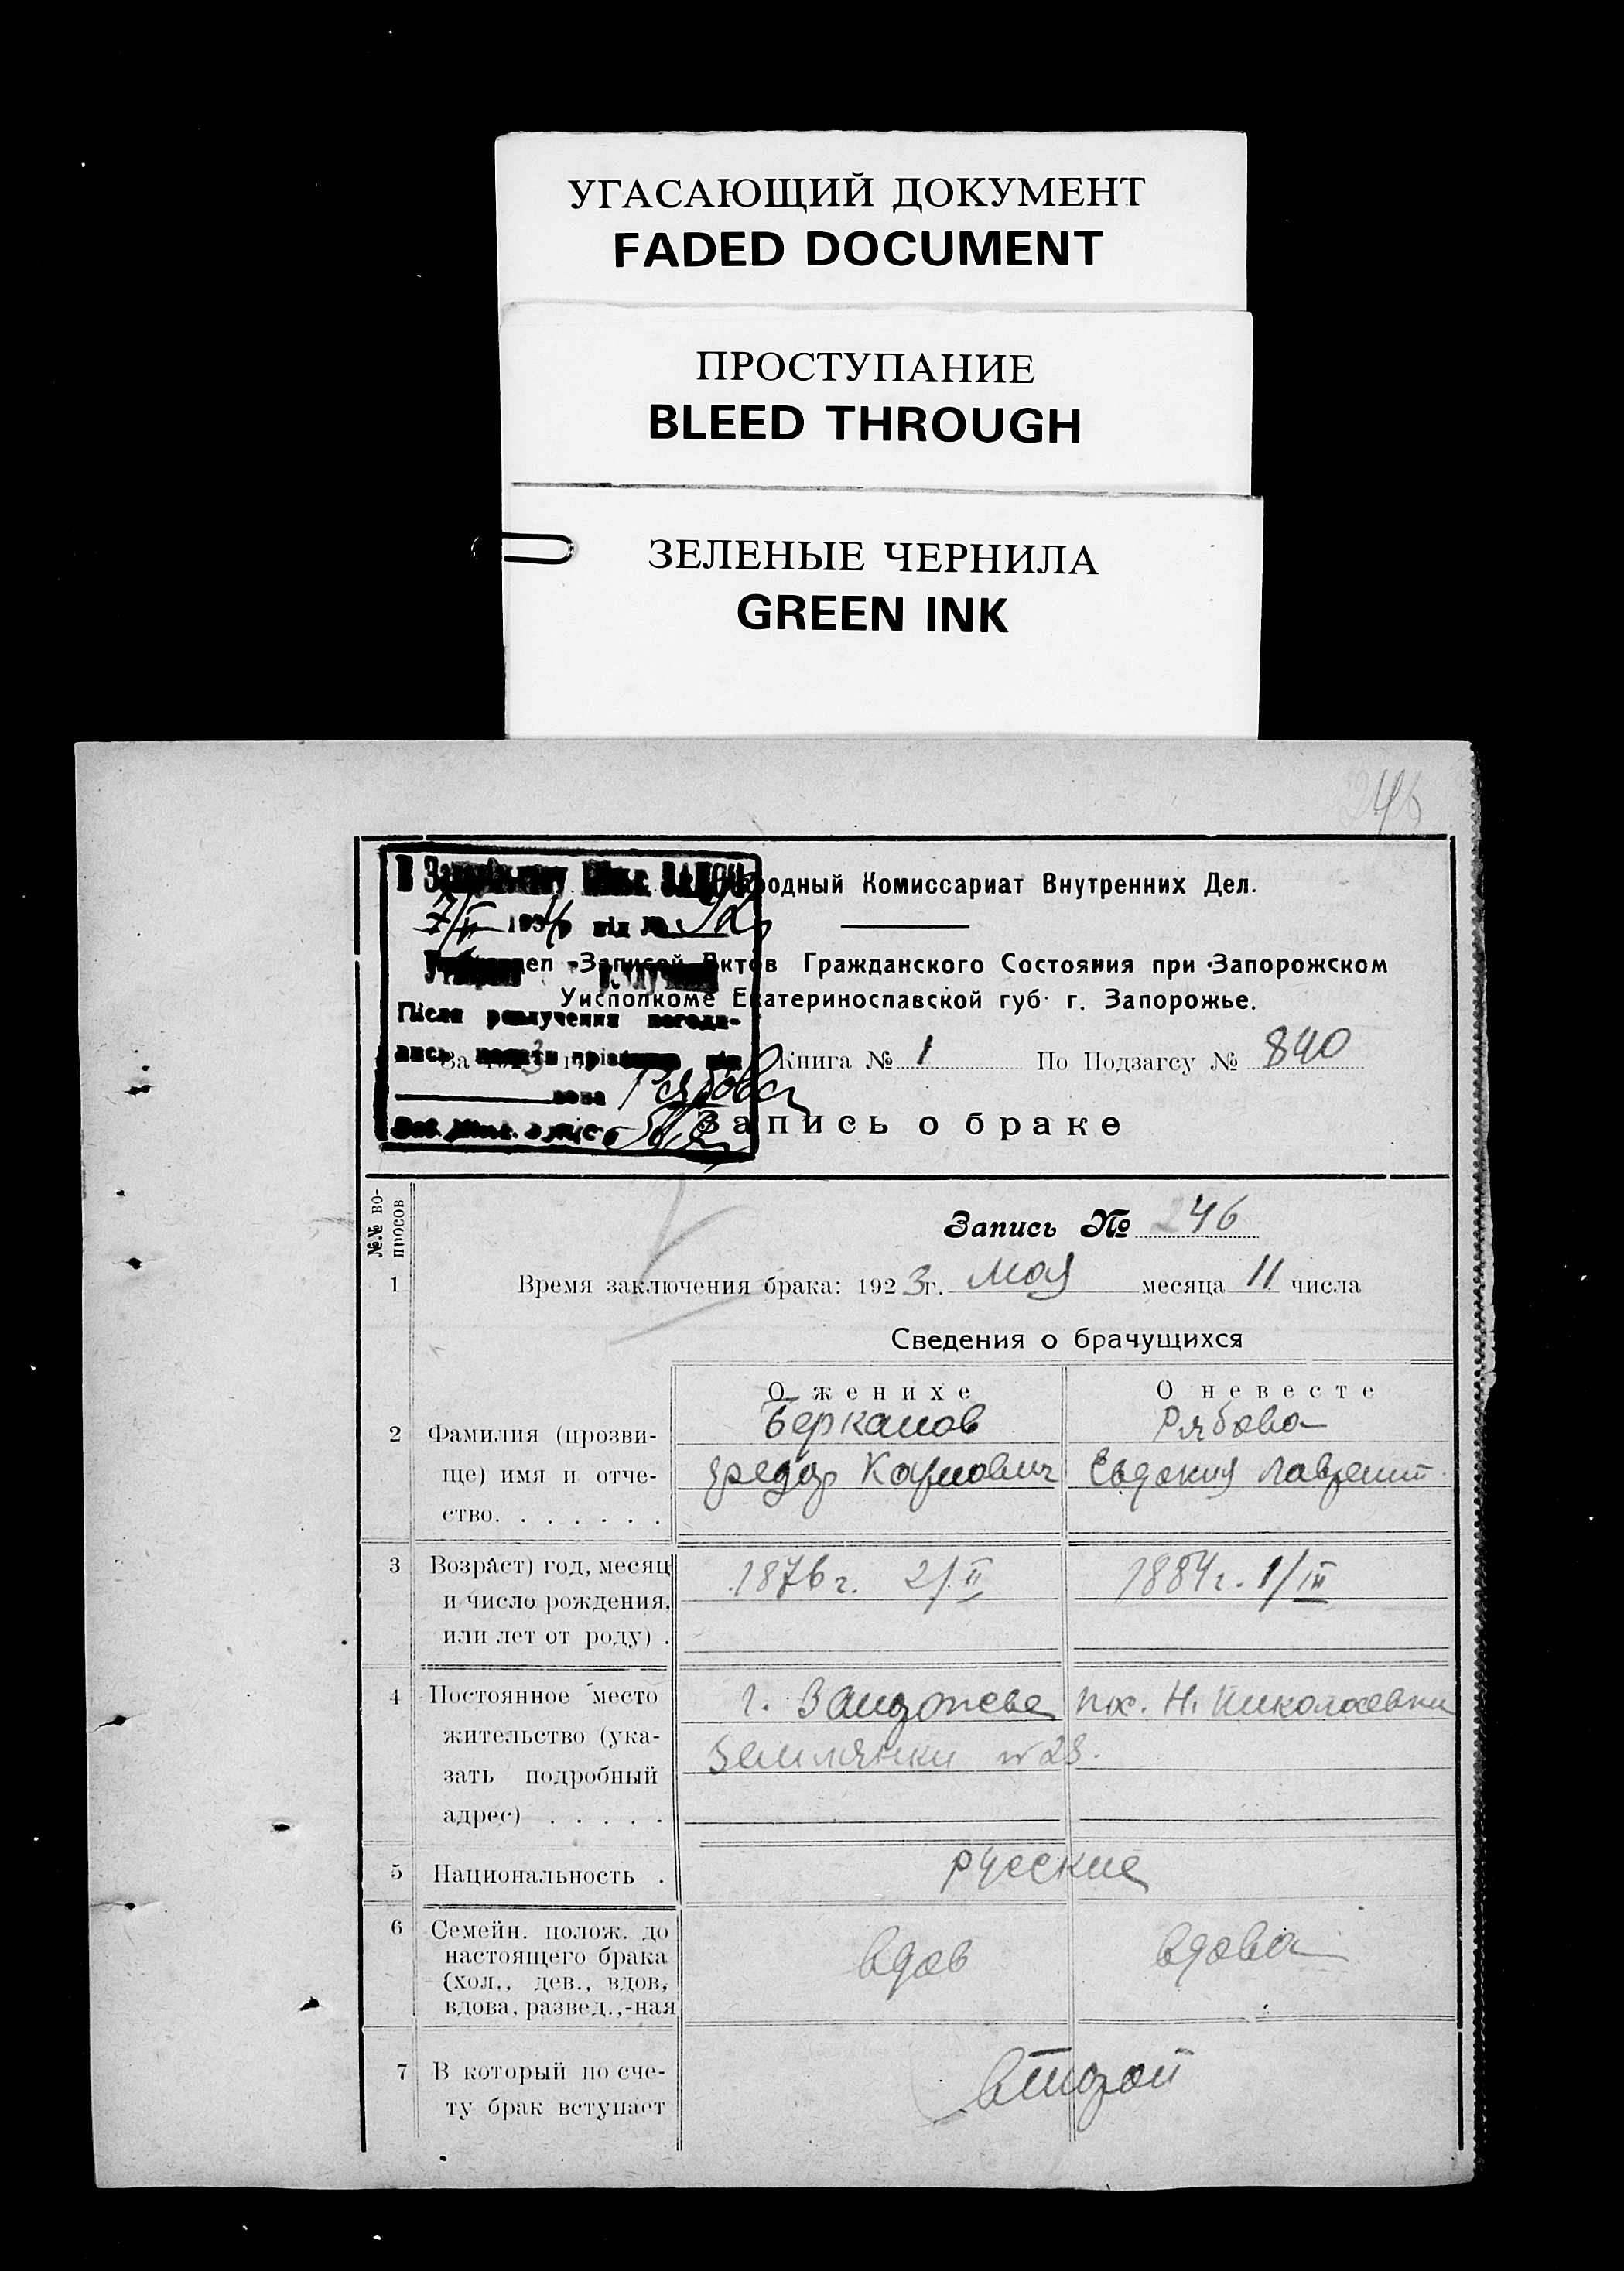 УГАСАЮЩИЙ ДОКУМЕНТ
FADED DOCUMENT
ПРОСТУПАНИЕ
BLEED THROUGH
ЗЕЛЕНЫЕ ЧЕРНИЛА
GREEN INK
246
Комиссариат Внутренних Дел.
7/II
Записей Актов Гражданского Состояния при Запорожском
Уисполкоме Екатеринославской губ. г. Запорожье.
Після розлучення
За Книга № 1 По Подзагсу № 840
Рябова
Запись о браке
№№ во-
просов
Запись № 246
1 Время заключения брака: 1923г. мая месяца 11 числа
Сведения о брачущихся
О женихе О невесте
2 Фамилия (прозви- Беркамов Рябова
ще) имя и отче- Федор Карпович Евдокия Лаврент.
ство. . . . . . .
3 Возраст) год, месяц 1876 г. 2/II 1884 г. 1/III
и число рождения,
или лет от роду) .
4 Постоянное место г. Запорожье пос. Н. Николаевки
жительство (ука- Землянки № 23.
зать подробный
адрес) . . . . .
5 Национальность . русские
6 Семейн. полож. до
настоящего брака вдов вдова
(хол., дев., вдов,
вдова, развед.,-ная
7 В который по сче- второй
ту брак вступает